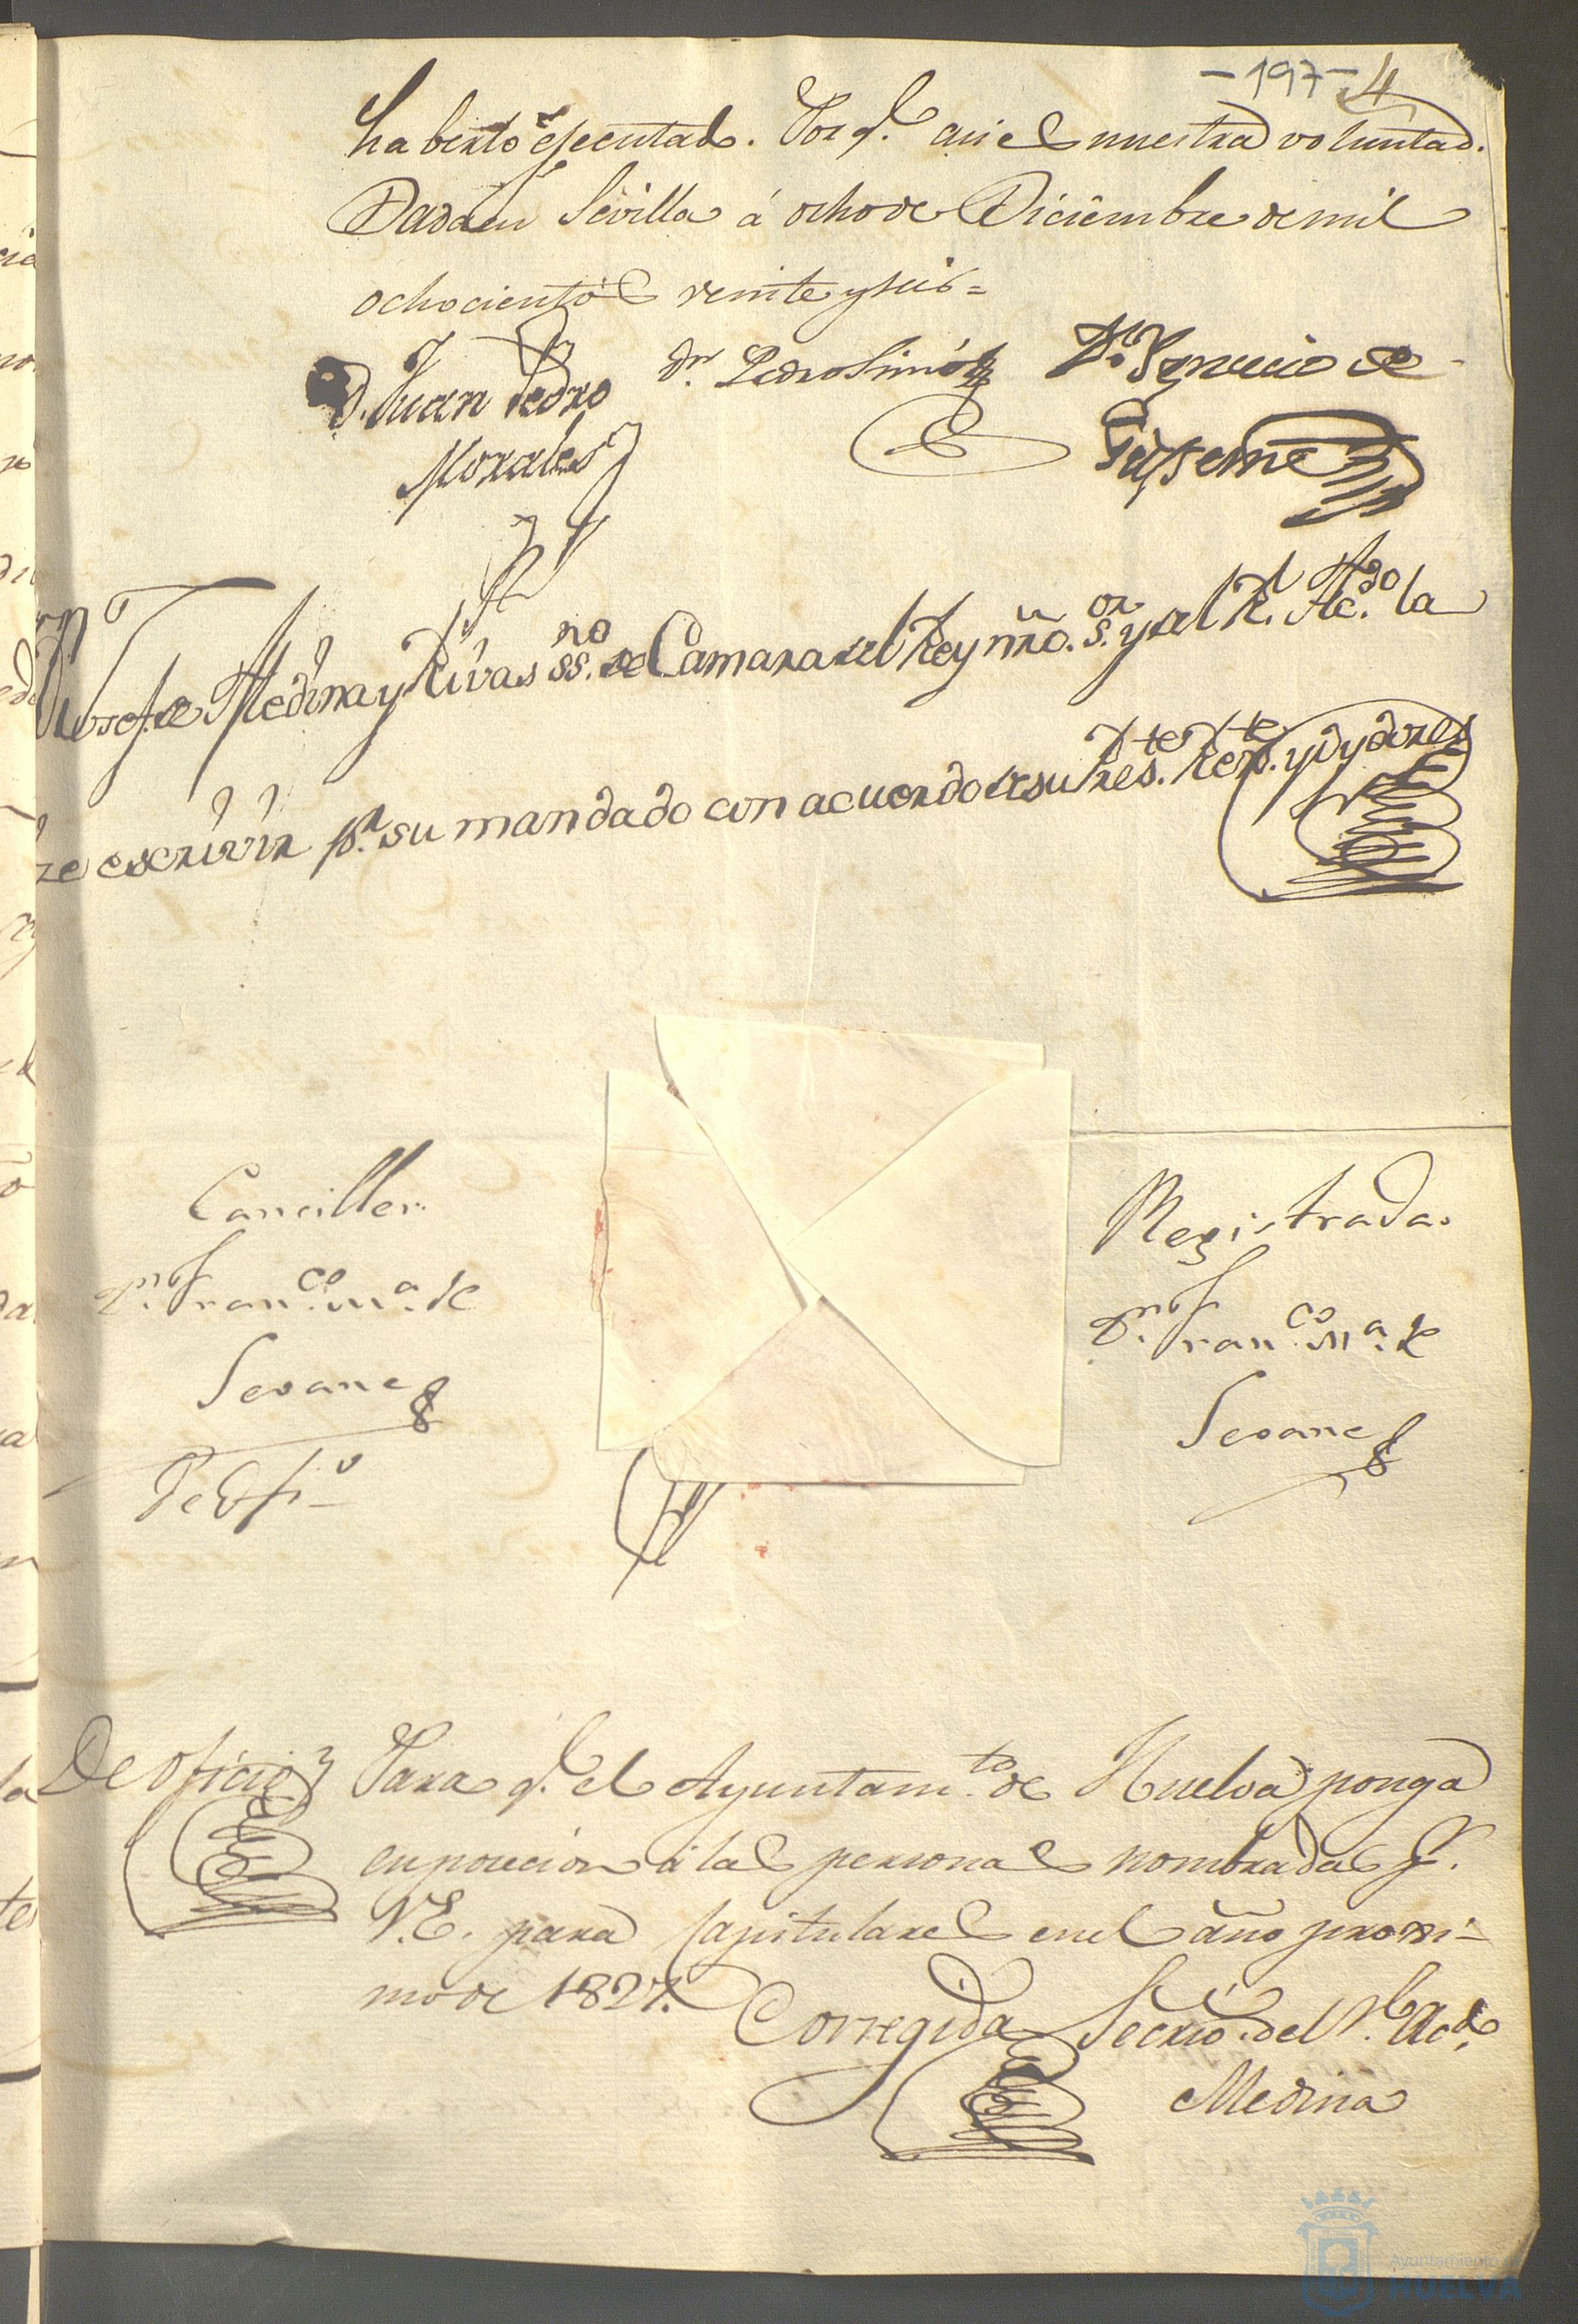 -197- 4
haberlo ejecutado. Por q.e asi es nuestra voluntad.
Dada en Sevilla á ocho de Diciembre de mil
ochocientos veinte y seis=
D. Juan Pedro
Morales
Dn. Pedro Simó
Dn. Ygnacio de
Dn. Josef de Medina y Rivas SS.no de Camara del Rey nro. S.or y del Rl. Ac.do la
ze escrivir p.r su mandado con acuerdo de su Res.te Reg.te y oydores
Canciller
Dn. Fran.co M.a de
Seoane
De Ofi.o
Registrada.
Dn. Fran.co M.a de
Seoane
De oficio
Para q.e el Ayuntam.to de Huelva ponga
en posecion á las personas nombradas p.r
V.E. para Capitulares en el año proxi-
mo de 1827.
Corregida
Secrio. del Rl. Acdo.
Medina
Ayuntamiento de
HUELVA